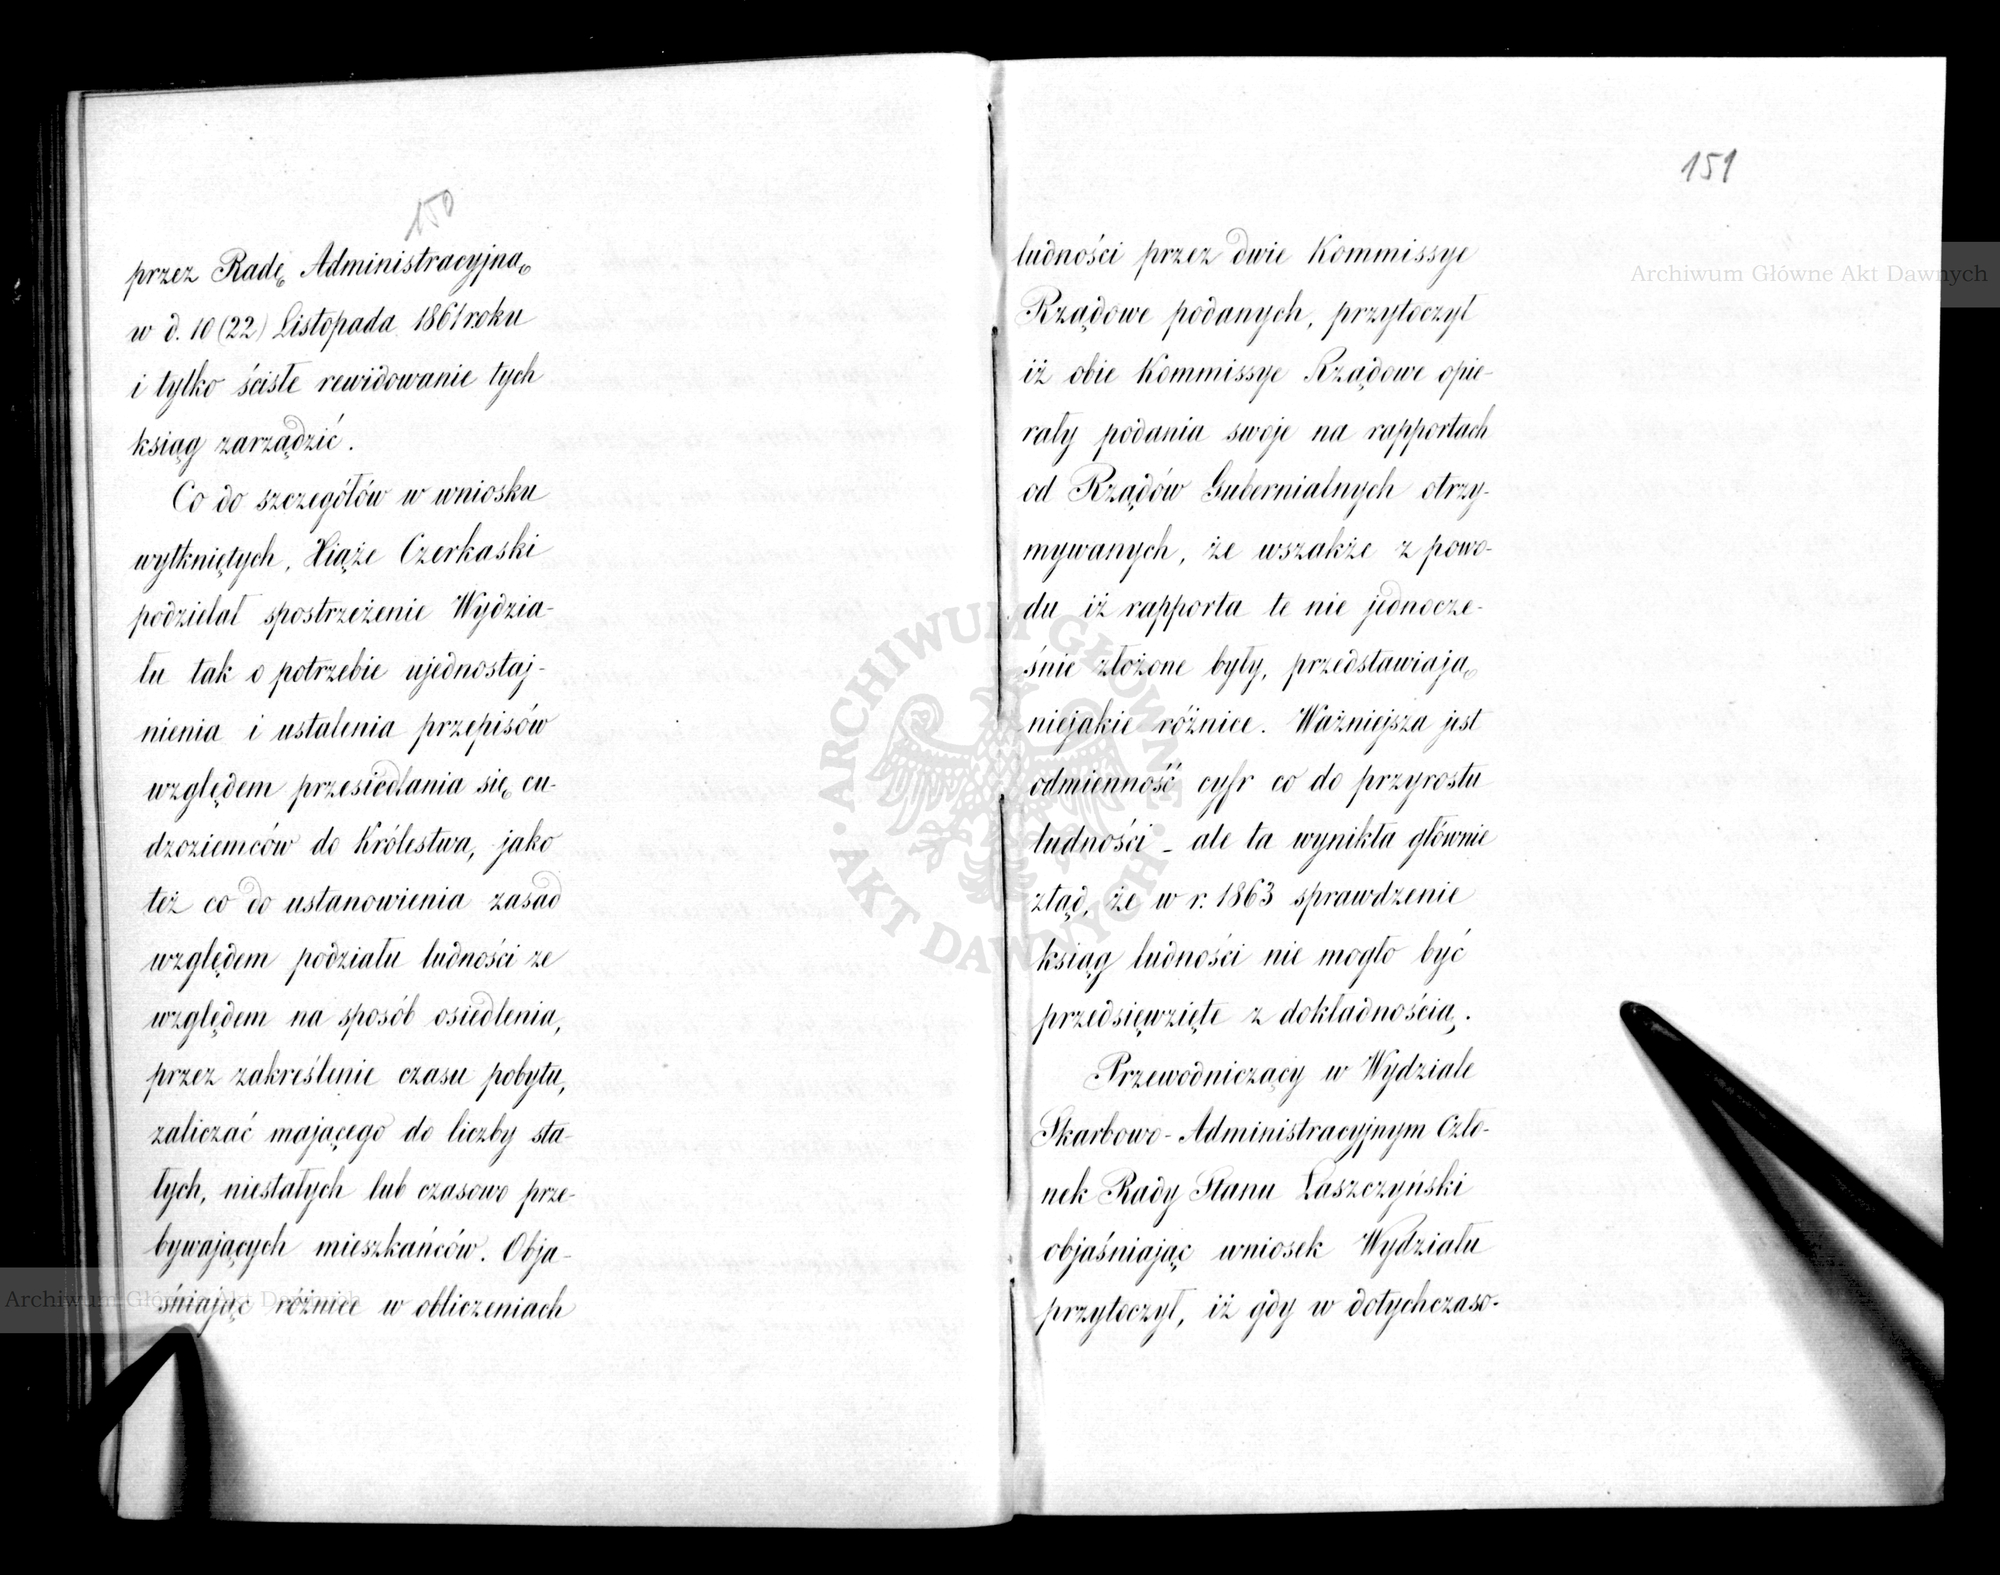 150
przez Radę Administracyjną
w d. 10 (22) Listopada 1861 roku
i tylko ścisłe rewidowanie tych
ksiąg zarządzić.
Co do szczegółów w wniosku
wytkniętych, Xiąże Czerkaski
podzielał spostrzeżenie Wydzia-
łu tak o potrzebie ujednostaj-
nienia i ustalenia przepisów
względem przesiedlania się cu-
dzoziemców do Królestwa, jako
też co do ustanowienia zasad
względem podziału ludności ze
względem na sposób osiedlenia,
przez zakreślenie czasu pobytu,
zaliczać mającego do liczby sta-
łych, niestałych lub czasowo prze-
bywających mieszkańców. Obja-
śniając różnice w obliczeniach
151
ludności przez dwie Kommissye
Rządowe podanych, przytoczył
iż obie Kommissye Rządowe opie-
rały podania swoje na rapportach
od Rządów Gubernialnych otrzy-
mywanych, że wszakże z powo-
du iż rapporta te nie jednocze-
śnie złożone były, przedstawiają
niejakie różnice. Ważniejsza jest
odmienność cyfr co do przyrostu
ludności – ale ta wynikła głównie
ztąd, że w r. 1863 sprawdzenie
ksiąg ludności nie mogło być
przedsięwzięte z dokładnością.
Przewodniczący w Wydziale
Skarbowo-Administracyjnym Czło-
nek Rady Stanu Łaszczyński
objaśniając wniosek Wydziału
przytoczył, iż gdy w dotychczaso-
Archiwum Główne Akt Dawnych
ARCHIWUM GŁÓWNE AKT DAWNYCH
Archiwum Główne Akt Dawnych